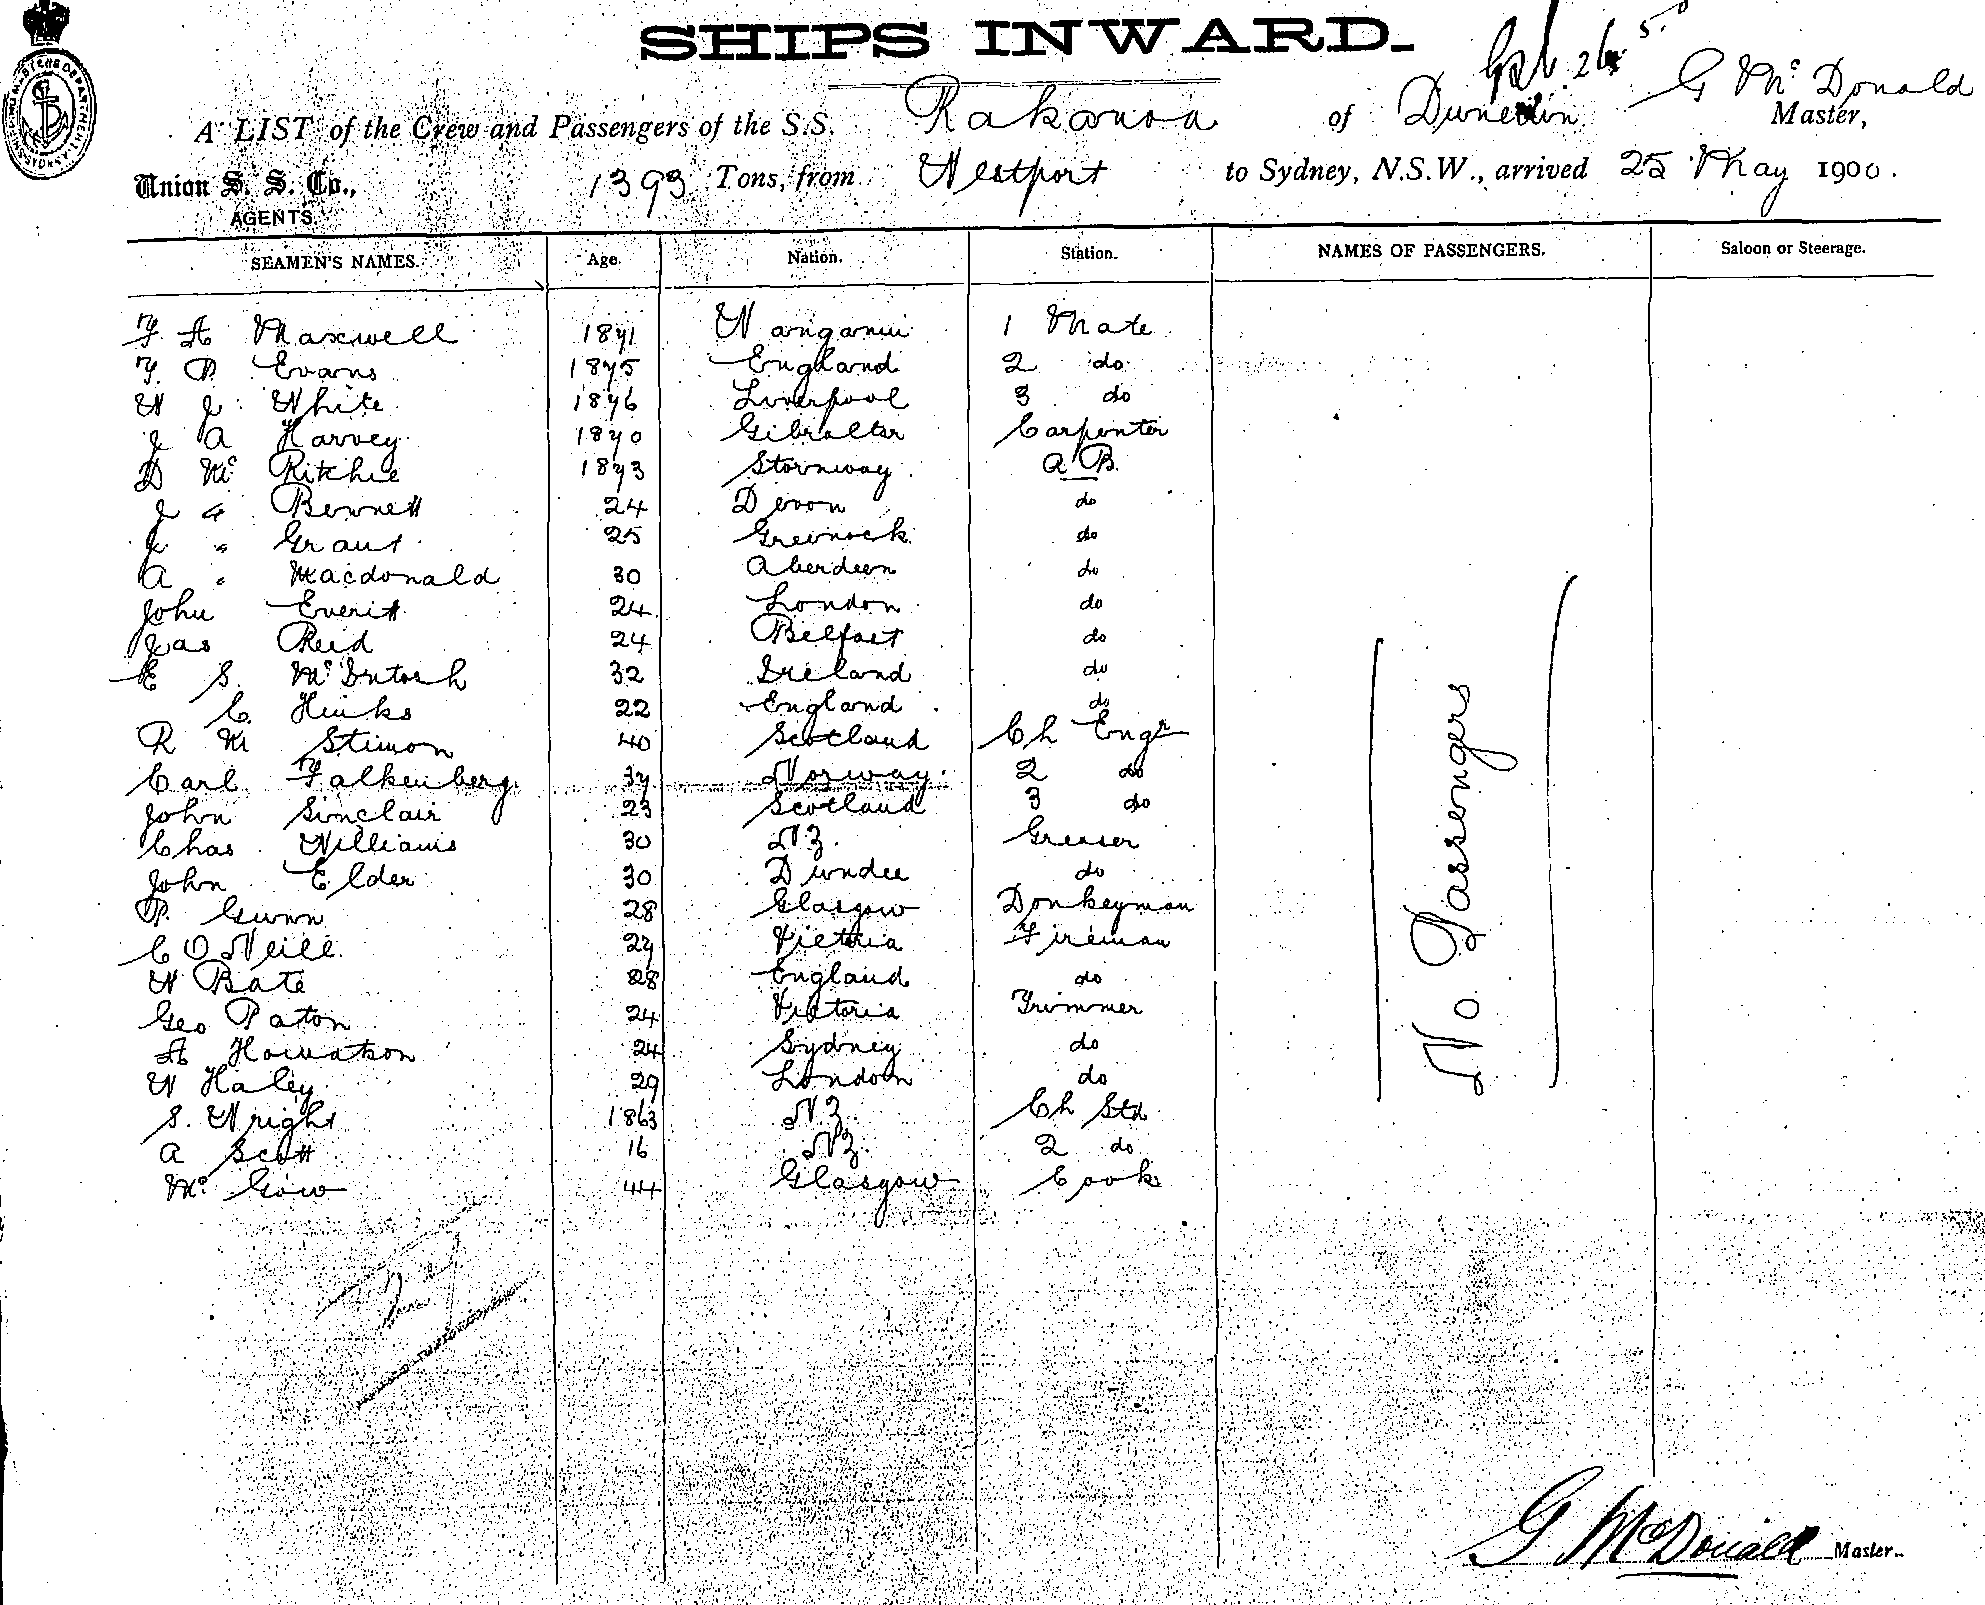 SHIPS INWARD.
A LIST of the Crew and Passengers of the S.S. Rakanoa of Dunedin G McDonald Master,
Union S. S. Co., AGENTS. 1393 Tons, from Westport to Sydney, N.S.W., arrived 25 May 1900.
SEAMEN'S NAMES. Age. Nation. Station. NAMES OF PASSENGERS. Saloon or Steerage.
F A Maxwell 1871 Wanganui 1 Mate
F. P. Evans 1875 England 2 do
W J White 1876 Liverpool 3 do
J A Harvey 1870 Gibralter Carpenter
D Mc Ritchie 1873 Stornway A B.
J " Bennett 24 Devon do
J " Grant 25 Greenock do
A " Macdonald 30 Aberdeen do
John Everitt 24 London do
Jas Reid 24 Belfast do
E S. McIntosh 32 Ireland do
C. Hinks 22 England do
R M Stimon 40 Scotland Ch Engr
Carl Falkenberg 37 Norway 2 do
John Sinclair 23 Scotland 3 do
Chas Williams 30 NZ. Greaser
John Elder 30 Dundee do
P. Gunn 28 Glasgow Donkeyman
C O'Neill 27 Victoria Fireman
W Bate 28 England do
Geo Paton 24 Victoria Trimmer
A Howatson 24 Sydney do
W Haley 29 London do
S. Wright 1863 NZ. Ch Std
A Scott 16 NZ 2 do
Mc Gow 44 Glasgow Cook
No Passengers
G McDonald Master.